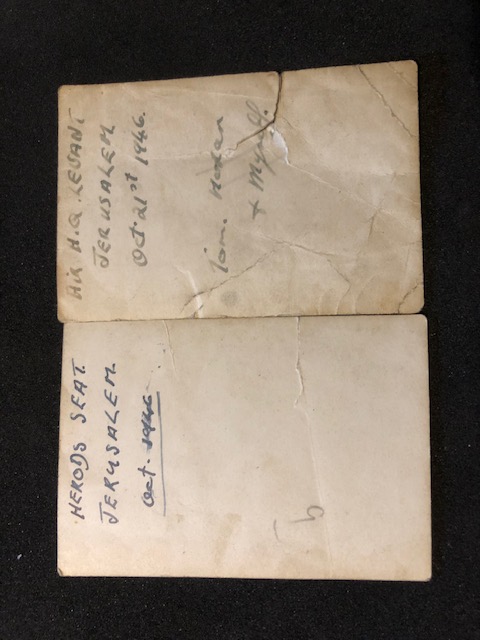 AIR H.Q LEVANT
JERUSALEM.
Oct. 21st 1946.
Tom.
& Myself.
HERODS SEAT.
JERUSALEM.
Oct. 1946
5